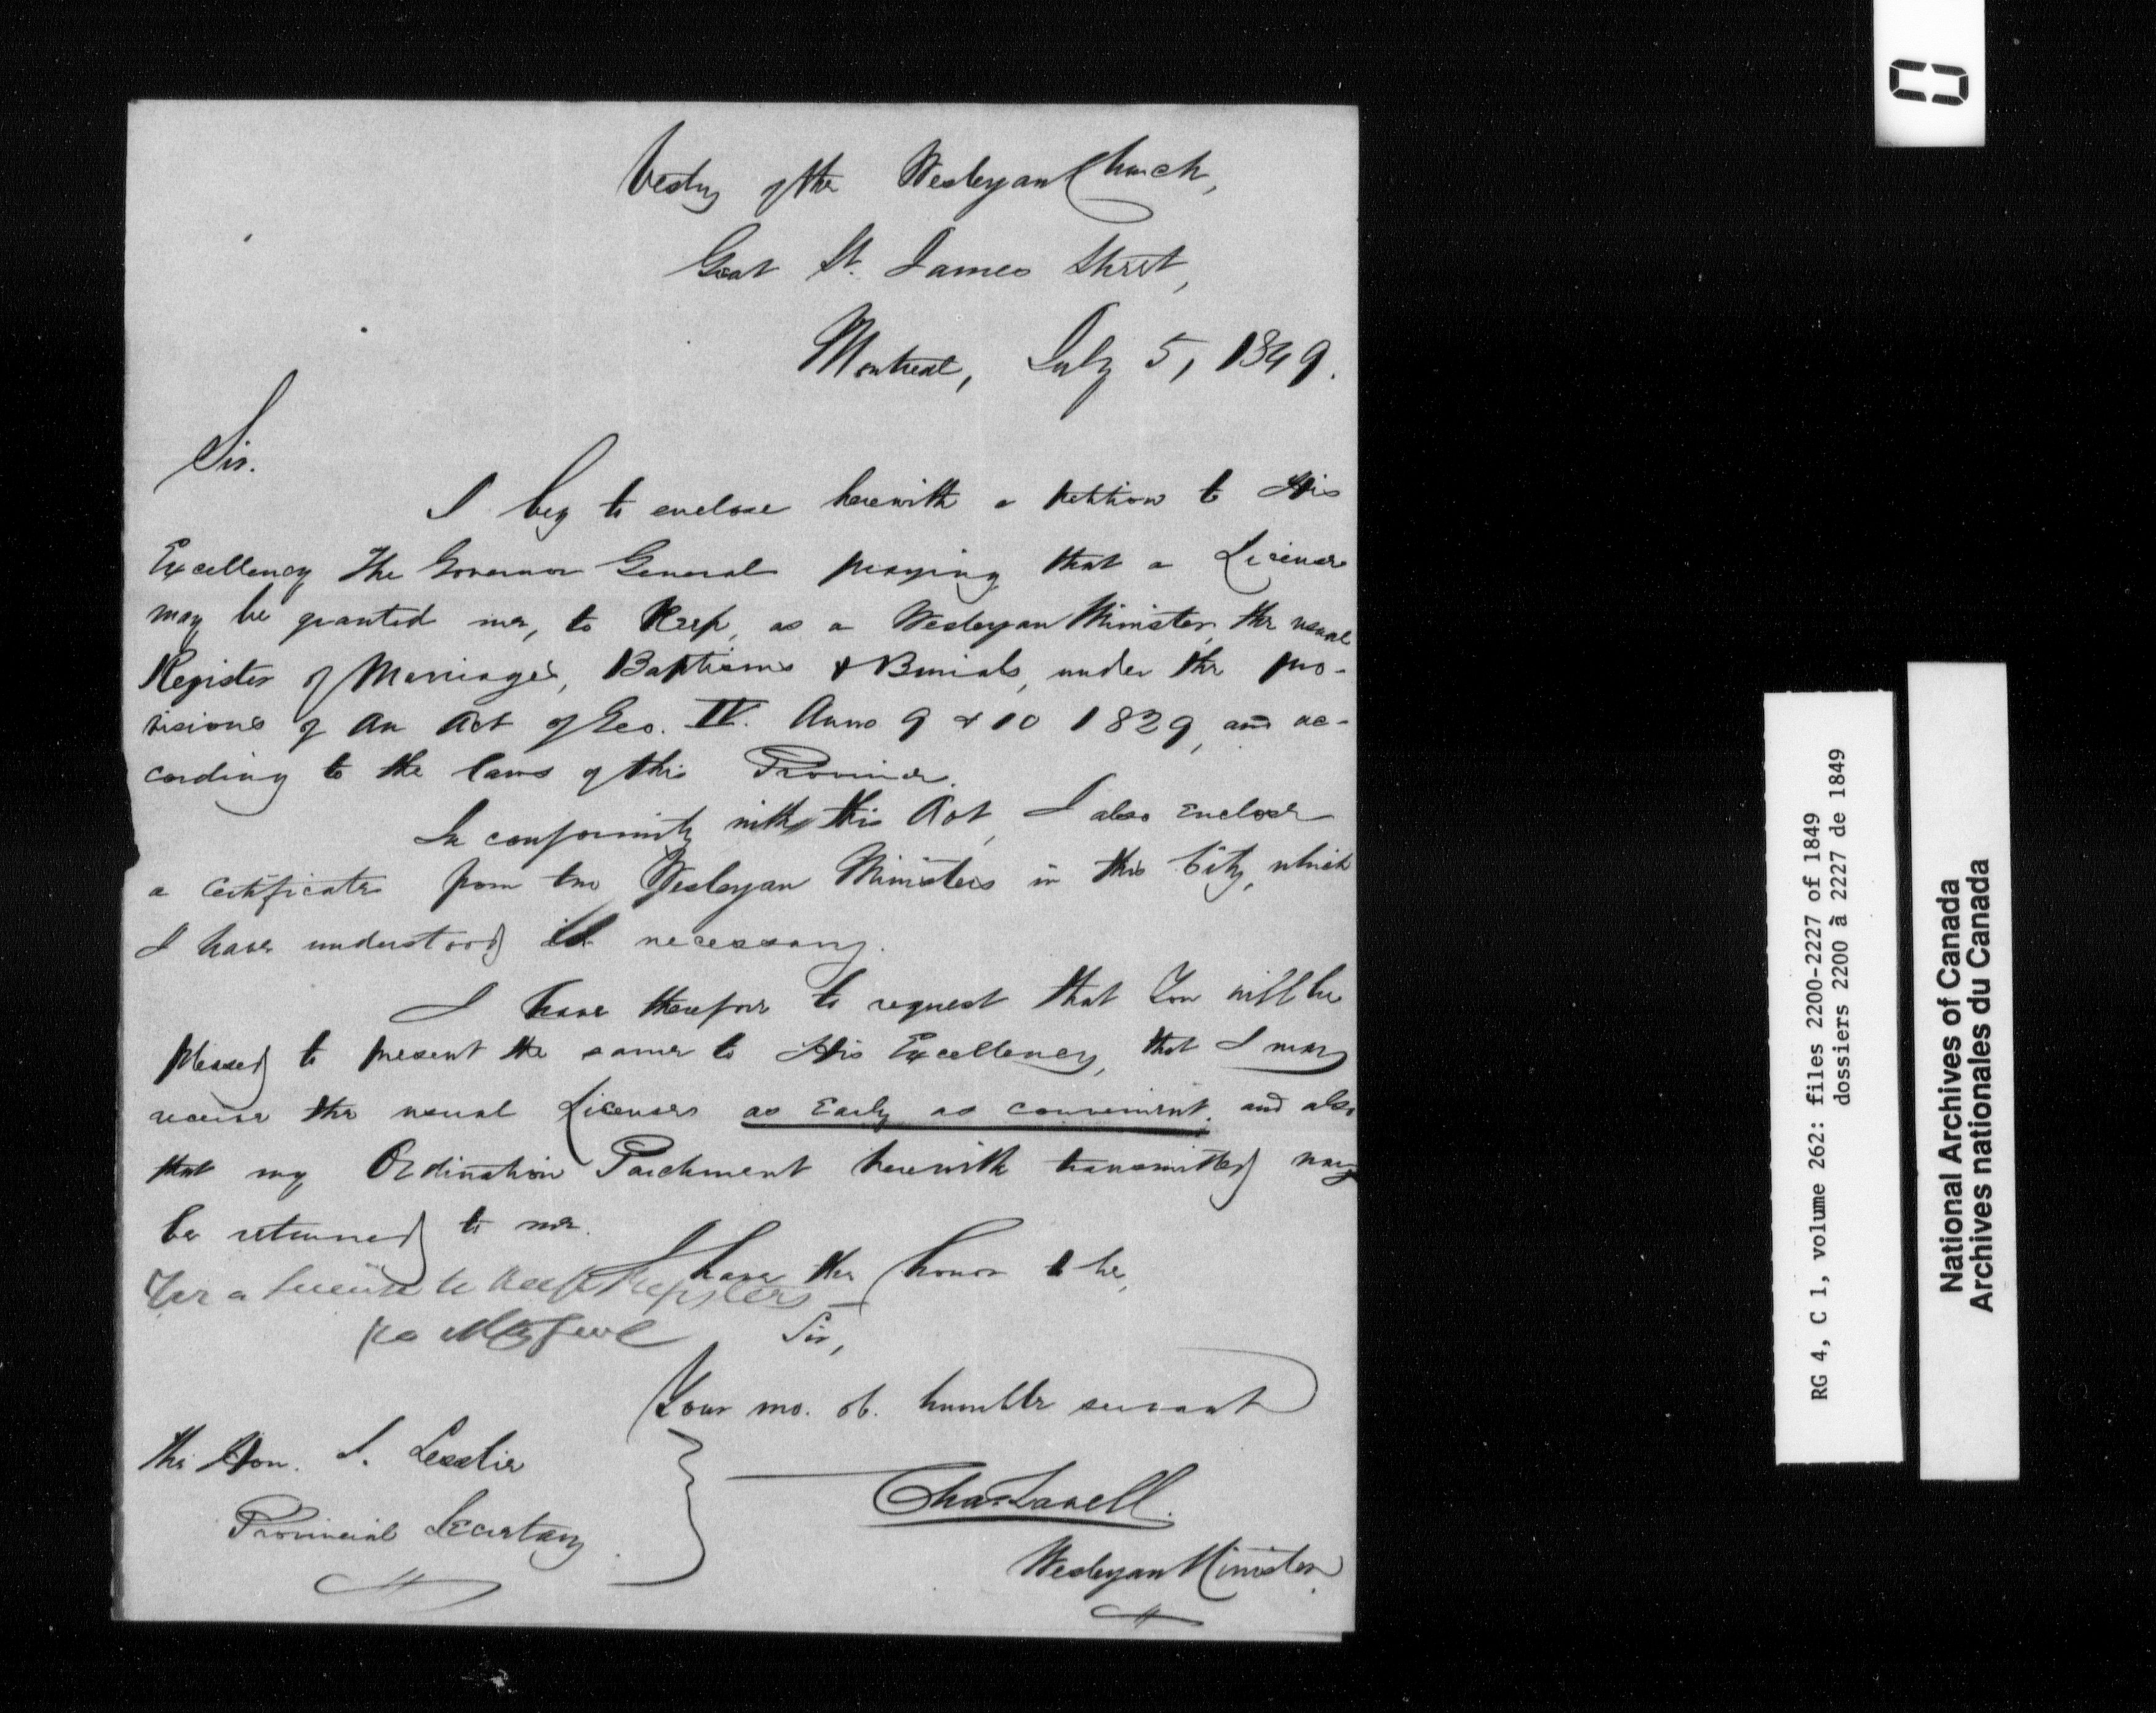 Vestry of the Wesleyan Church,
Great St. James Street,
Montreal, July 5, 1849.
Sir.
I beg to enclose herewith a petition to His
Excellency The Governor General praying that a License
may be granted me, to Keep, as a Wesleyan Minister, the usual
Register of Marriages, Baptisms & Burials, under the pro-
visions of an Act of Geo. IV. Anno 9 & 10 1829, and ac-
cording to the laws of this Province.
In conformity with this Act, I also enclose
a Certificate from two Wesleyan Ministers in this City, which
I have understood is necessary.
I have therefore to request that You will be
pleased to present the same to His Excellency, that I may
receive the usual Licenses as Early as convenient, and also
that my Ordination Parchment herewith transmitted may
be returned to me.
I have the honor to be,
For a license to keep Registers
Sir,
Your mo. ob. humble servant
The Hon. J. Lesslie
Provincial Secretary
Chas Lavell.
Wesleyan Minister
RG 4, C 1, volume 262: files 2200-2227 of 1849
dossiers 2200 à 2227 de 1849
National Archives of Canada
Archives nationales du Canada